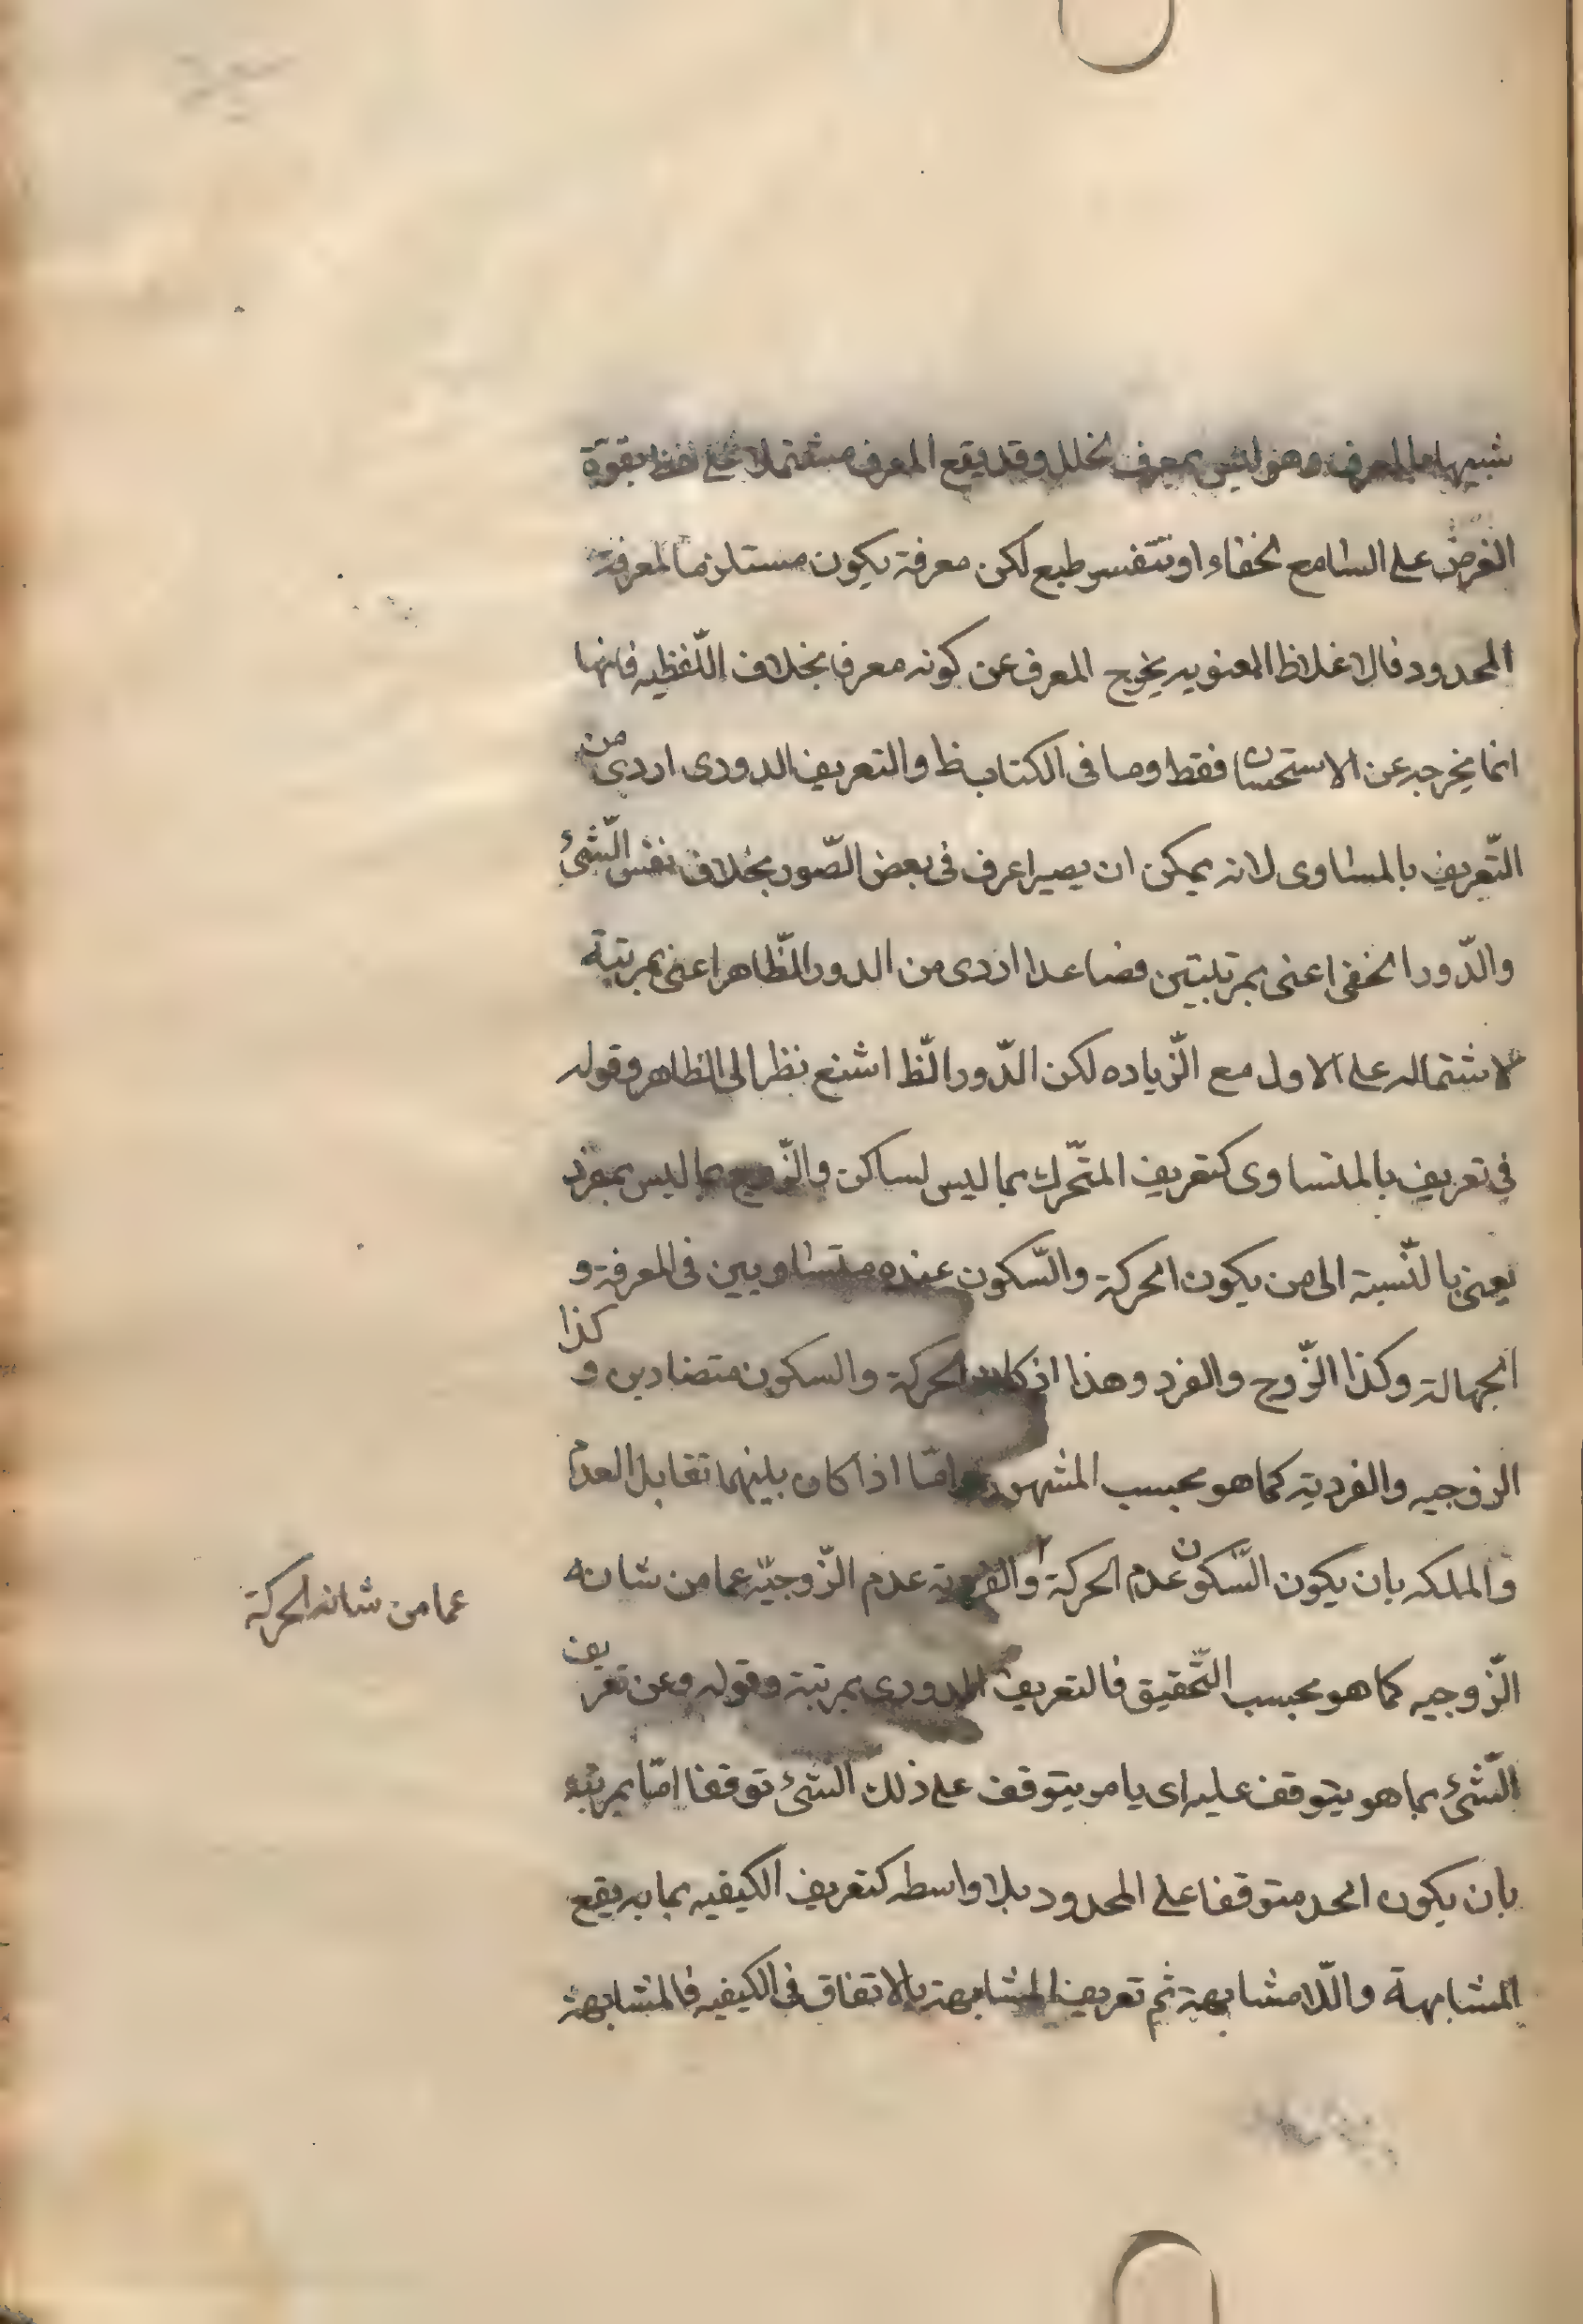 شبيها بالمعرف وهو ليس بمعرف لخلل وقد يقع المعرف مشتملا على لفظ يفوت
الغرض على السامع لخفاء او تنفر طبع لكن معرفة يكون مستلزما لمعرفة
المحدود فالاغلاط المعنويه يخرج المعرف عن كونه معرفا بخلاف اللّفظيه فانها
انما يخرجه عن الاستحسان فقط وما فى الكتاب ظ والتعريف الدورى اردى من
التّعريف بالمساوى لانه يمكن ان يصير اعرف فى بعض الصّور بخلاف نفس الشّئ
والدّور الخفى اعنى بمرتبتين فصاعدا اردى من الدور الظّاهر اعنى بمرتبة
لاشتماله على الاول مع الزّياده لكن الدّور الظّ اشنع نظرا الى الظاهر وقوله
فى تعريف بالمتساوى كتعريف المتحّرك بما ليس لساكن والزّوج بما ليس بمفرد
يعنى بالنّسبة الى من يكون الحركة والسّكون عنده متساويين فى المعرفة و
الجهالة وكذا الزّوج والفرد وهذا اذ كان الحركة والسكون متضادين و كذا
الزوجيه والفرديّه كما هو بحسب المشهور وامّا اذا كان بينهما تقابل العدم
والملكه بان يكون السّكون عدم الحركة والفردية عدم الزّوجيّة عما من شانه
عما من شانه الحركة
الزّوجيه كما هو بحسب التّحقيق فالتعريف الدورى بمرتبة وقوله وعن تعريف
الشّئ بما هو يتوقف عليه اى يا مر يتوقف على ذلك الشئ توقفا امّا بمرتبة
بان يكون الحد متوقفا على المحدود بلا واسطه كتعريف الكيفيه بما به يقع
المشابهة واللّامشابهة ثم تعريف المشابهة بالاتفاق فى الكيفيه فالمشابهة